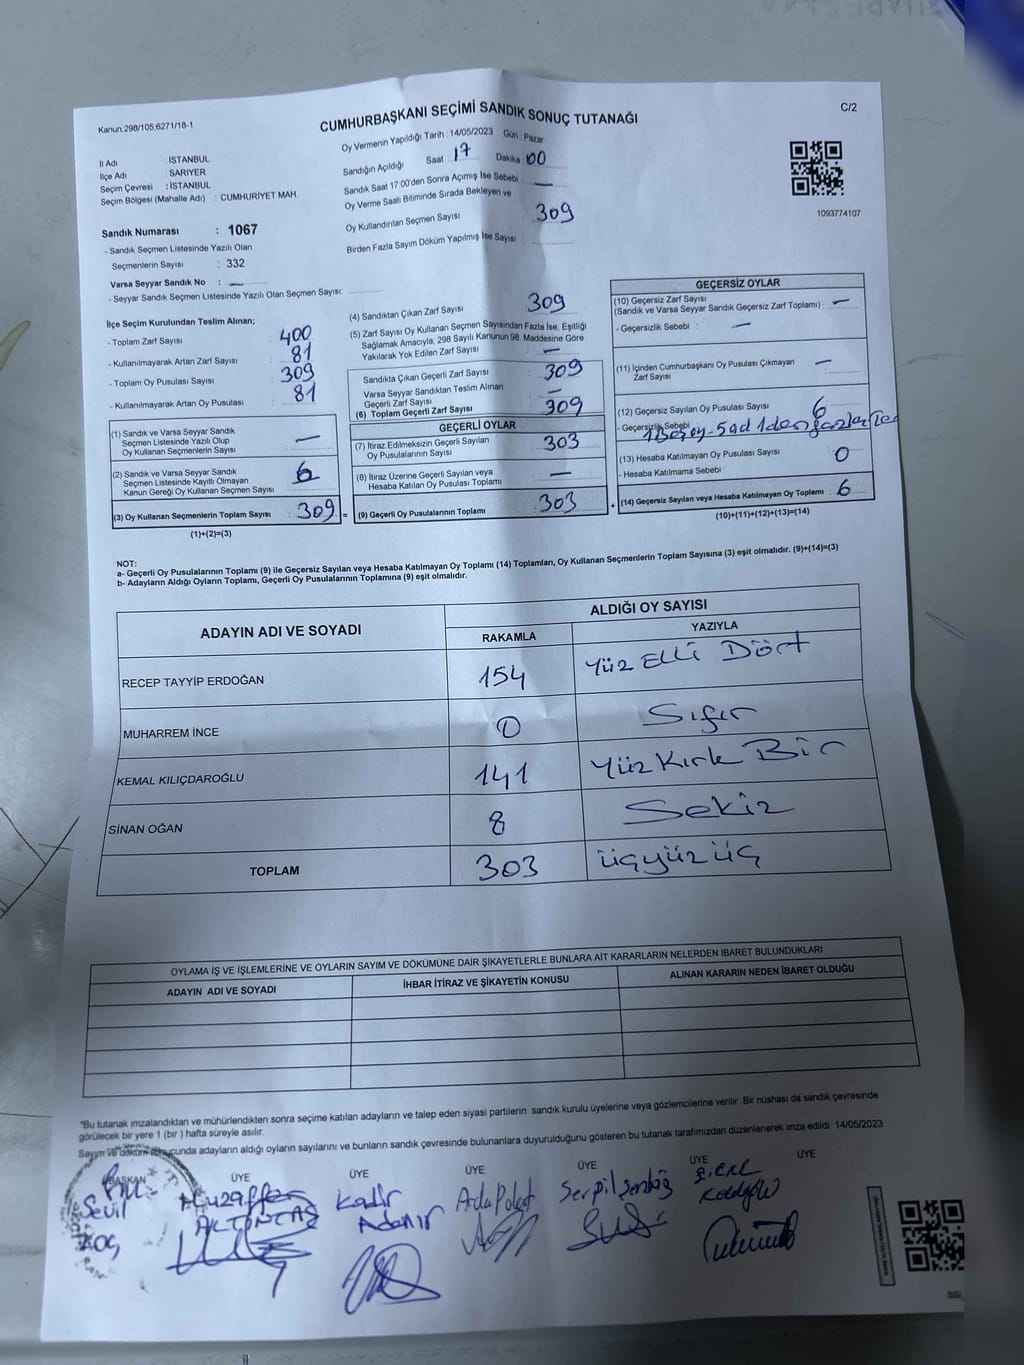 C/2
Kanun.298/105,6271/18-1
CUMHURBAŞKANI SEÇİMİ SANDIK SONUÇ TUTANAĞI
Oy Vermenin Yapıldığı Tarih : 14/05/2023 Gün : Pazar
İl Adı : İSTANBUL
İlçe Adı : SARIYER
Seçim Çevresi : İSTANBUL
Seçim Bölgesi (Mahalle Adı) : CUMHURİYET MAH.
Sandık Numarası : 1067
- Sandık Seçmen Listesinde Yazılı Olan
Seçmenlerin Sayısı : 332
Varsa Seyyar Sandık No : —
- Seyyar Sandık Seçmen Listesinde Yazılı Olan Seçmen Sayısı:
Sandığın Açıldığı Saat 17 Dakika 00
Sandık Saat 17:00'den Sonra Açımış İse Sebebi —
Oy Verme Saati Bitiminde Sırada Bekleyen ve
Oy Kullandırılan Seçmen Sayısı 309
Birden Fazla Sayım Döküm Yapılmış İse Sayısı
1093774107
İlçe Seçim Kurulundan Teslim Alınan;
- Toplam Zarf Sayısı : 400
- Kullanılmayarak Artan Zarf Sayısı : 81
- Toplam Oy Pusulası Sayısı : 309
- Kullanılmayarak Artan Oy Pusulası : 81
(1) Sandık ve Varsa Seyyar Sandık
Seçmen Listesinde Yazılı Olup
Oy Kullanan Seçmenlerin Sayısı : —
(2) Sandık ve Varsa Seyyar Sandık
Seçmen Listesinde Kayıtlı Olmayan
Kanun Gereği Oy Kullanan Seçmen Sayısı : 6
(3) Oy Kullanan Seçmenlerin Toplam Sayısı : 309 =
(1)+(2)=(3)
(4) Sandıktan Çıkan Zarf Sayısı 309
(5) Zarf Sayısı Oy Kullanan Seçmen Sayısından Fazla İse, Eşitliği
Sağlamak Amacıyla, 298 Sayılı Kanunun 98. Maddesine Göre
Yakılarak Yok Edilen Zarf Sayısı : —
Sandıkta Çıkan Geçerli Zarf Sayısı : 309
Varsa Seyyar Sandıktan Teslim Alınan
Geçerli Zarf Sayısı : —
(6) Toplam Geçerli Zarf Sayısı : 309
GEÇERLİ OYLAR
(7) İtiraz Edilmeksizin Geçerli Sayılan
Oy Pusulalarının Sayısı : 303
(8) İtiraz Üzerine Geçerli Sayılan veya
Hesaba Katılan Oy Pusulası Toplamı : —
(9) Geçerli Oy Pusulalarının Toplamı : 303 +
GEÇERSİZ OYLAR
(10) Geçersiz Zarf Sayısı
(Sandık ve Varsa Seyyar Sandık Geçersiz Zarf Toplamı) : —
- Geçersizlik Sebebi : —
(11) İçinden Cumhurbaşkanı Oy Pusulası Çıkmayan
Zarf Sayısı : —
(12) Geçersiz Sayılan Oy Pusulası Sayısı : 6
- Geçersizlik Sebebi :
(13) Hesaba Katılmayan Oy Pusulası Sayısı : 0
- Hesaba Katılmama Sebebi :
(14) Geçersiz Sayılan veya Hesaba Katılmayan Oy Toplamı : 6
(10)+(11)+(12)+(13)=(14)
NOT:
a- Geçerli Oy Pusulalarının Toplamı (9) ile Geçersiz Sayılan veya Hesaba Katılmayan Oy Toplamı (14) Toplamları, Oy Kullanan Seçmenlerin Toplam Sayısına (3) eşit olmalıdır. (9)+(14)=(3)
b- Adayların Aldığı Oyların Toplamı, Geçerli Oy Pusulalarının Toplamına (9) eşit olmalıdır.
ADAYIN ADI VE SOYADI
ALDIĞI OY SAYISI
RAKAMLA YAZIYLA
RECEP TAYYİP ERDOĞAN 154 Yüz Elli Dört
MUHARREM İNCE 0 Sıfır
KEMAL KILIÇDAROĞLU 141 Yüz Kırk Bir
SİNAN OĞAN 8 Sekiz
TOPLAM 303 üçyüz üç
OYLAMA İŞ VE İŞLEMLERİNE VE OYLARIN SAYIM VE DÖKÜMÜNE DAİR ŞİKAYETLERLE BUNLARA AİT KARARLARIN NELERDEN İBARET BULUNDUKLARI
ADAYIN ADI VE SOYADI İHBAR İTİRAZ VE ŞİKAYETİN KONUSU ALINAN KARARIN NEDEN İBARET OLDUĞU
*Bu tutanak imzalandıktan ve mühürlendikten sonra seçime katılan adayların ve talep eden siyasi partilerin sandık kurulu üyelerine veya gözlemcilerine verilir. Bir nüshası da sandık çevresinde
görülecek bir yere 1 (bir) hafta süreyle asılır.
Sayım ve döküm sonucunda adayların aldığı oyların sayılarını ve bunların sandık çevresinde bulunanlara duyurulduğunu gösteren bu tutanak tarafımızdan düzenlenerek imza edildi. 14/05/2023
BAŞKAN ÜYE ÜYE ÜYE ÜYE ÜYE ÜYE
Sevil Koç
Muzaffer ALTUNTAŞ
Kadir Adanır
Arda Polat